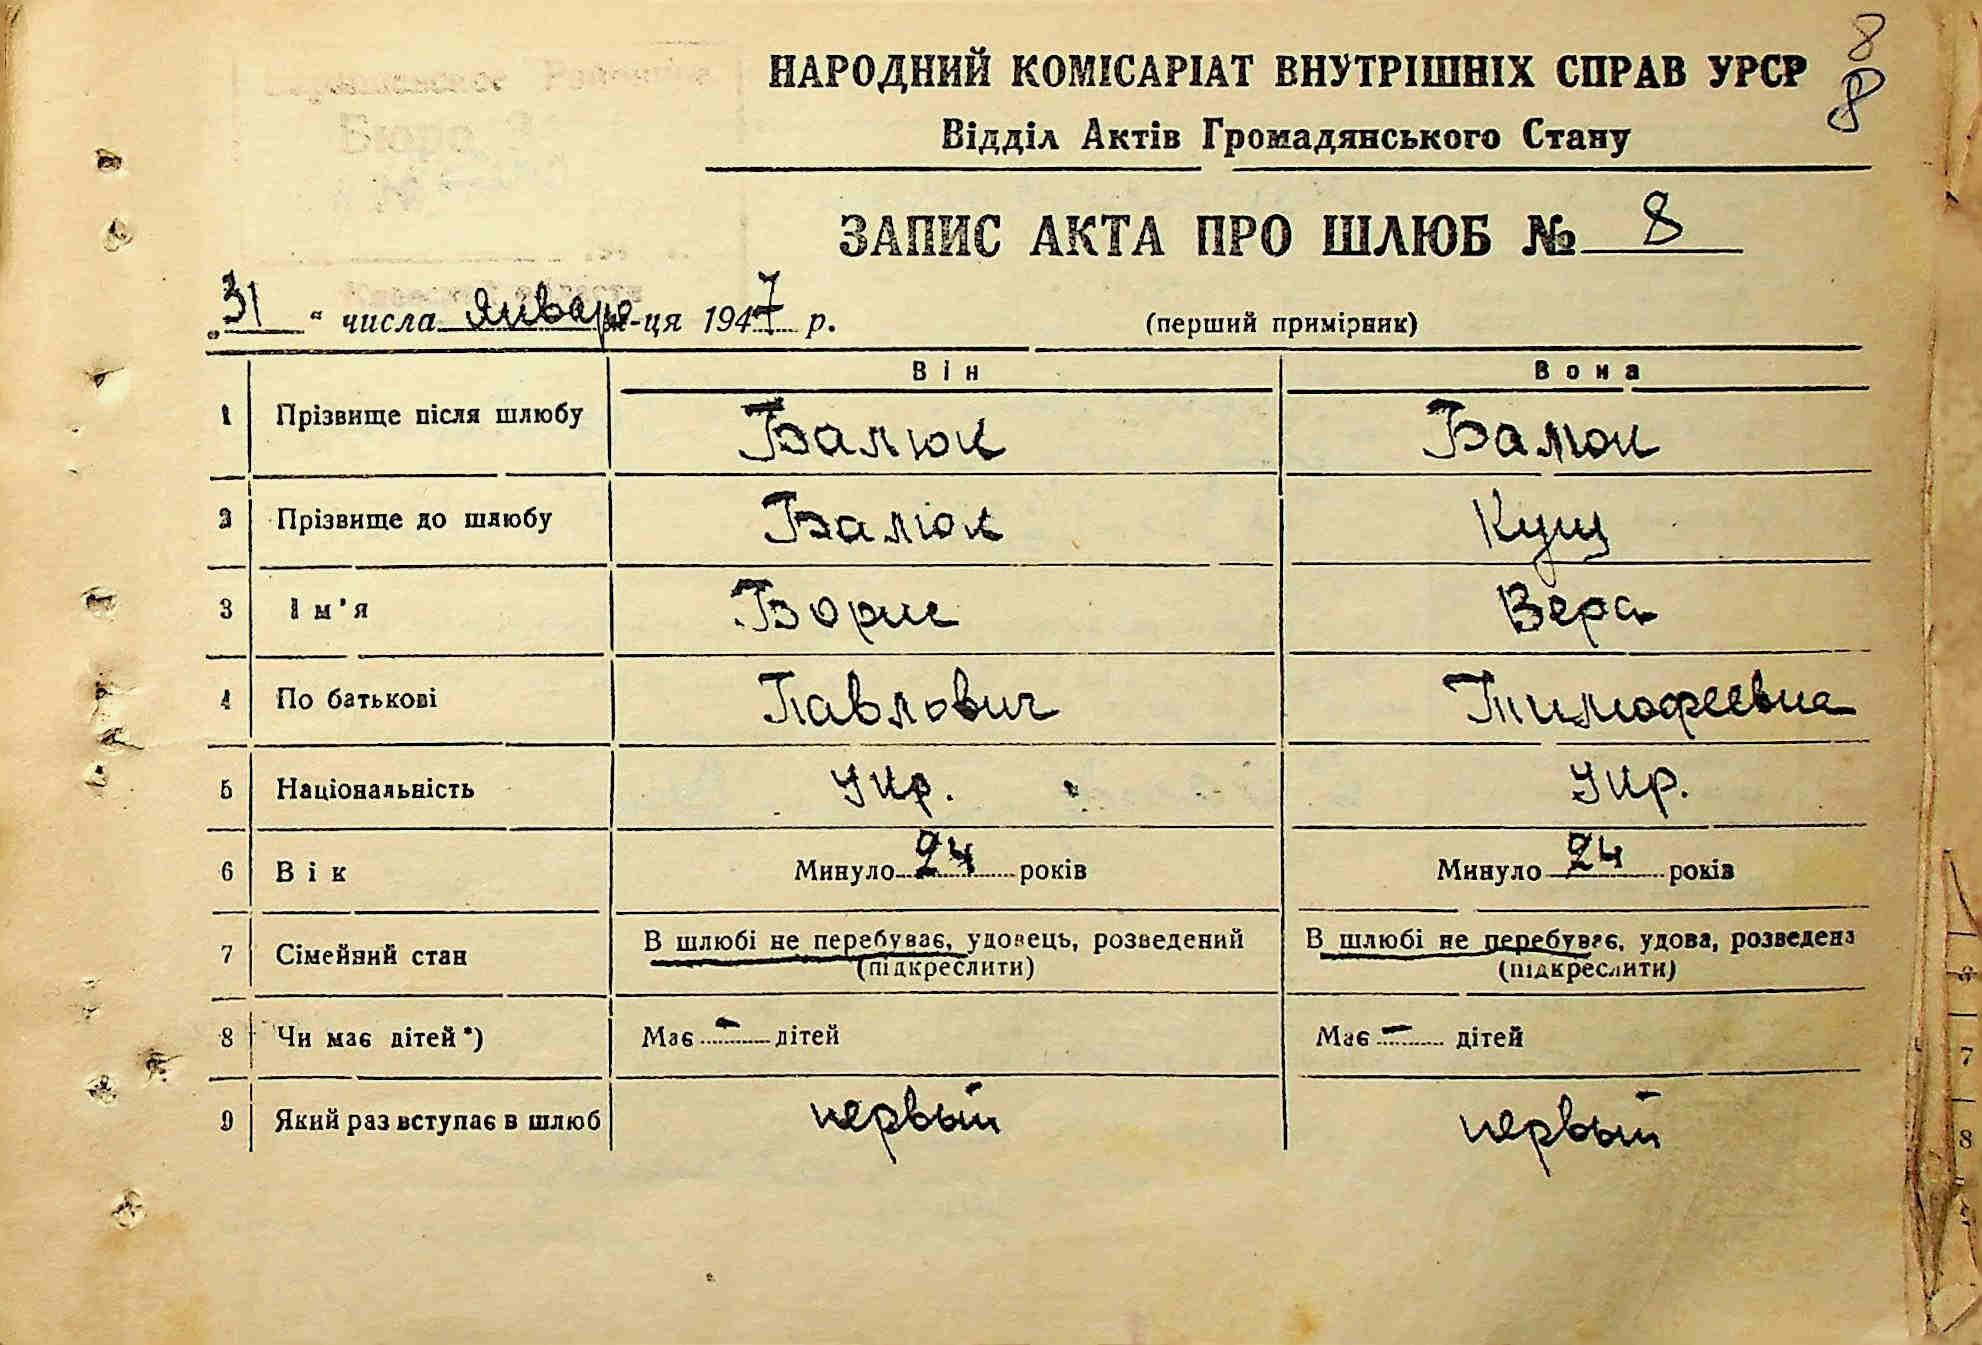 8
НАРОДНИЙ КОМІСАРІАТ ВНУТРІШНІХ СПРАВ УРСР
8
Відділ Актів Громадянського Стану
ЗАПИС АКТА ПРО ШЛЮБ № 8
„31“ числа января м-ця 1947 р. (перший примірник)
Він Вона
1 Прізвище після шлюбу Балюк Балюк
2 Прізвище до шлюбу Балюк Кущ
3 Ім'я Борис Вера
4 По батькові Павлович Тимофеевна
5 Національність Укр. Укр.
6 Вік Минуло 24 років Минуло 24 років
7 Сімейний стан В шлюбі не перебуває, удовець, розведений В шлюбі не перебуває, удова, розведена
(підкреслити) (підкреслити)
8 Чи має дітей*) Має – дітей Має – дітей
9 Який раз вступає в шлюб первый первый
7
8